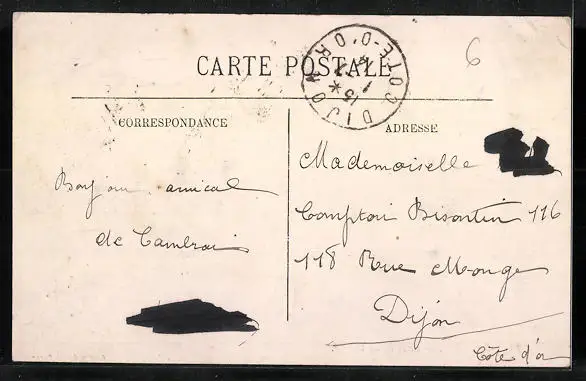 6
CARTE POSTALE
DIJON * COTE-D'OR
CORRESPONDANCE
Bonjour amical
de Cambrai
ADRESSE
Mademoiselle
Comptoir Bisontin 116
118 Rue Monge
Dijon
Côte d'or